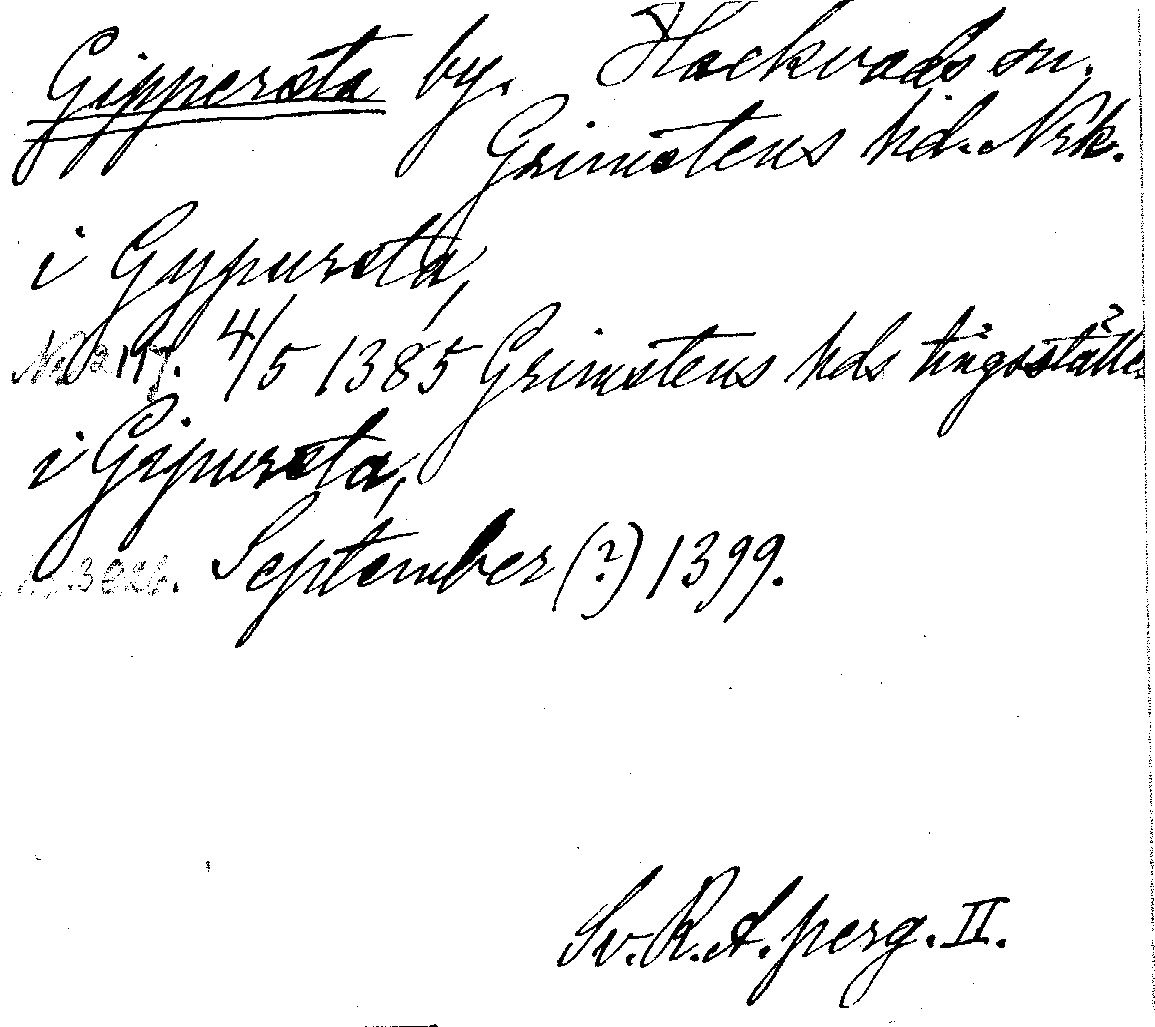 Gippersta by. Hackvads sn.
Grimstens hd. Nrk.
i Gypursta,
4/5 1385 Grimstens hds tingsställe
i Gipursta,
September (?) 1399.
Sv. R. A. perg. II.